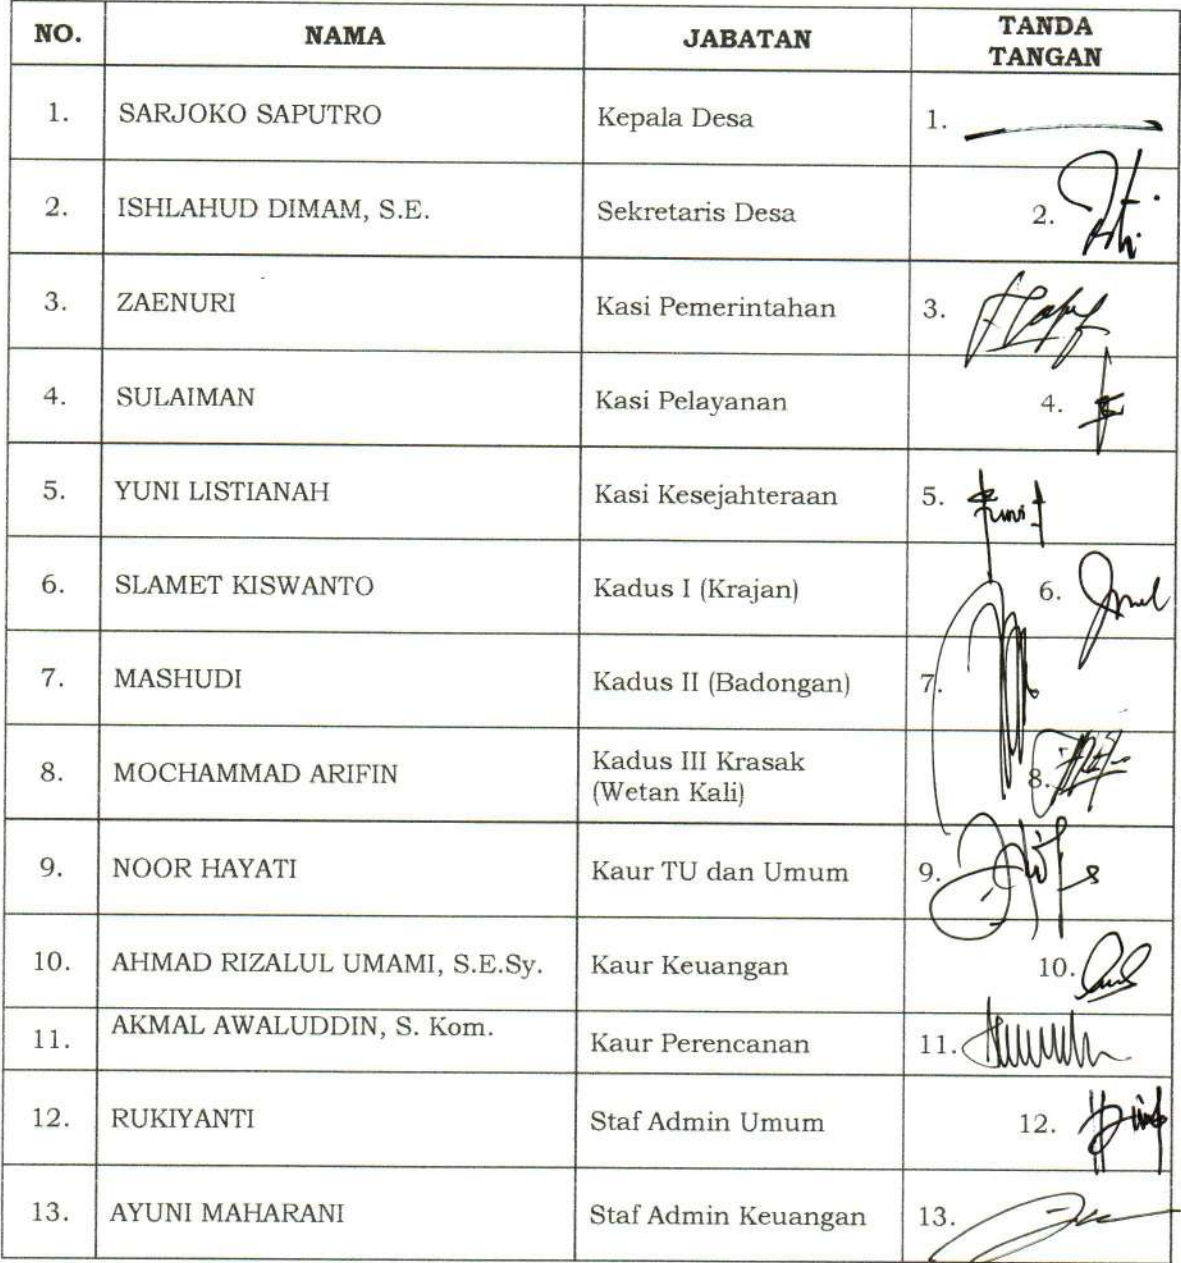 NO. NAMA JABATAN TANDA
TANGAN
1. SARJOKO SAPUTRO Kepala Desa 1.
2. ISHLAHUD DIMAM, S.E. Sekretaris Desa 2.
3. ZAENURI Kasi Pemerintahan 3.
4. SULAIMAN Kasi Pelayanan 4.
5. YUNI LISTIANAH Kasi Kesejahteraan 5.
6. SLAMET KISWANTO Kadus I (Krajan) 6.
7. MASHUDI Kadus II (Badongan) 7.
8. MOCHAMMAD ARIFIN Kadus III Krasak
(Wetan Kali) 8.
9. NOOR HAYATI Kaur TU dan Umum 9.
10. AHMAD RIZALUL UMAMI, S.E.Sy. Kaur Keuangan 10.
11. AKMAL AWALUDDIN, S. Kom. Kaur Perencanan 11.
12. RUKIYANTI Staf Admin Umum 12.
13. AYUNI MAHARANI Staf Admin Keuangan 13.